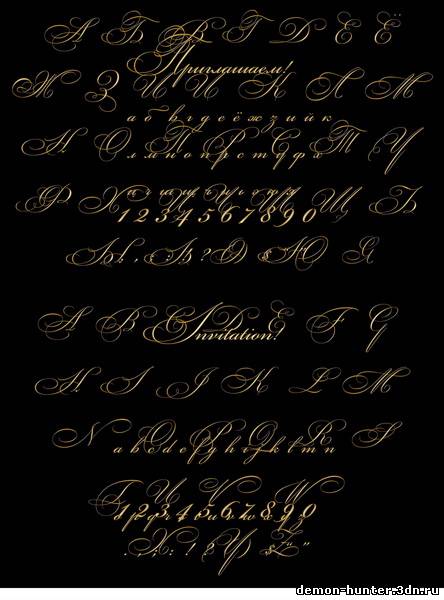 А Б В Г Д Е Ё
Приглашаем!
Ж З И Й К Л М
а б в г д е ё ж з и й к
Н О П Р С Т У
л м н о п р с т у ф х
Ф Х Ц Ч Ш Щ Ъ
1 2 3 4 5 6 7 8 9 0
Ы ! , : Ь ? Э & Ю Я
A B C D E F G
Invitation!
H I J K L M
N O P Q R S
a b c d e f g h i j k l m n
T U V W
1 2 3 4 5 6 7 8 9 0
o p q r s t u v w x y z
. , : ; ! ? & " "
X Y Z
demon-hunter.3dn.ru